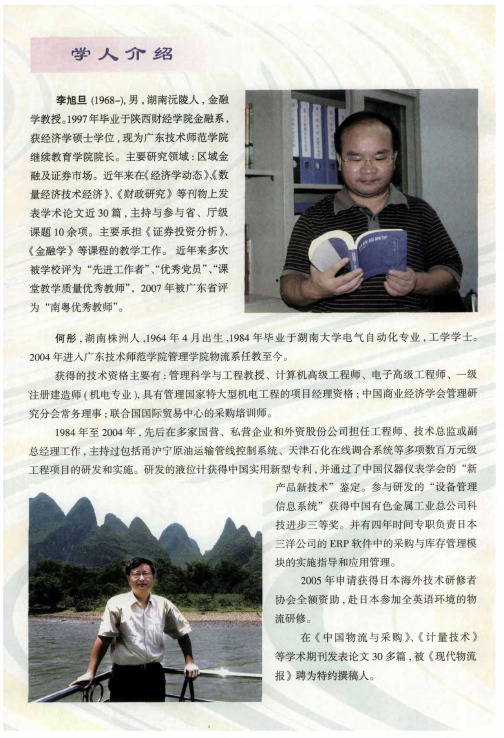 学人介绍
李旭旦 (1968–),男,湖南沅陵人,金融
学教授。1997 年毕业于陕西财经学院金融系,
获经济学硕士学位,现为广东技术师范学院
继续教育学院院长。主要研究领域:区域金
融及证券市场。近年来在《经济学动态》、《数
量经济技术经济》、《财政研究》等刊物上发
表学术论文近 30 篇,主持与参与省、厅级
课题 10 余项。主要承担《证券投资分析》、
《金融学》等课程的教学工作。 近年来多次
被学校评为“先进工作者”、“优秀党员”、“课
堂教学质量优秀教师”,2007 年被广东省评
为“南粤优秀教师”。
何彤,湖南株洲人,1964 年 4 月出生,1984 年毕业于湖南大学电气自动化专业,工学学士。
2004 年进入广东技术师范学院管理学院物流系任教至今。
获得的技术资格主要有:管理科学与工程教授、计算机高级工程师、电子高级工程师、一级
注册建造师(机电专业),具有管理国家特大型机电工程的项目经理资格;中国商业经济学会管理研
究分会常务理事;联合国国际贸易中心的采购培训师。
1984 年至 2004 年,先后在多家国营、私营企业和外资股份公司担任工程师、技术总监或副
总经理工作,主持过包括甬沪宁原油运输管线控制系统、天津石化在线调合系统等多项数百万元级
工程项目的研发和实施。研发的液位计获得中国实用新型专利,并通过了中国仪器仪表学会的“新
产品新技术”鉴定。参与研发的“设备管理
信息系统”获得中国有色金属工业总公司科
技进步三等奖。并有四年时间专职负责日本
三洋公司的 ERP 软件中的采购与库存管理模
块的实施指导和应用管理。
2005 年申请获得日本海外技术研修者
协会全额资助,赴日本参加全英语环境的物
流研修。
在《中国物流与采购》、《计量技术》
等学术期刊发表论文 30 多篇,被《现代物流
报》聘为特约撰稿人。